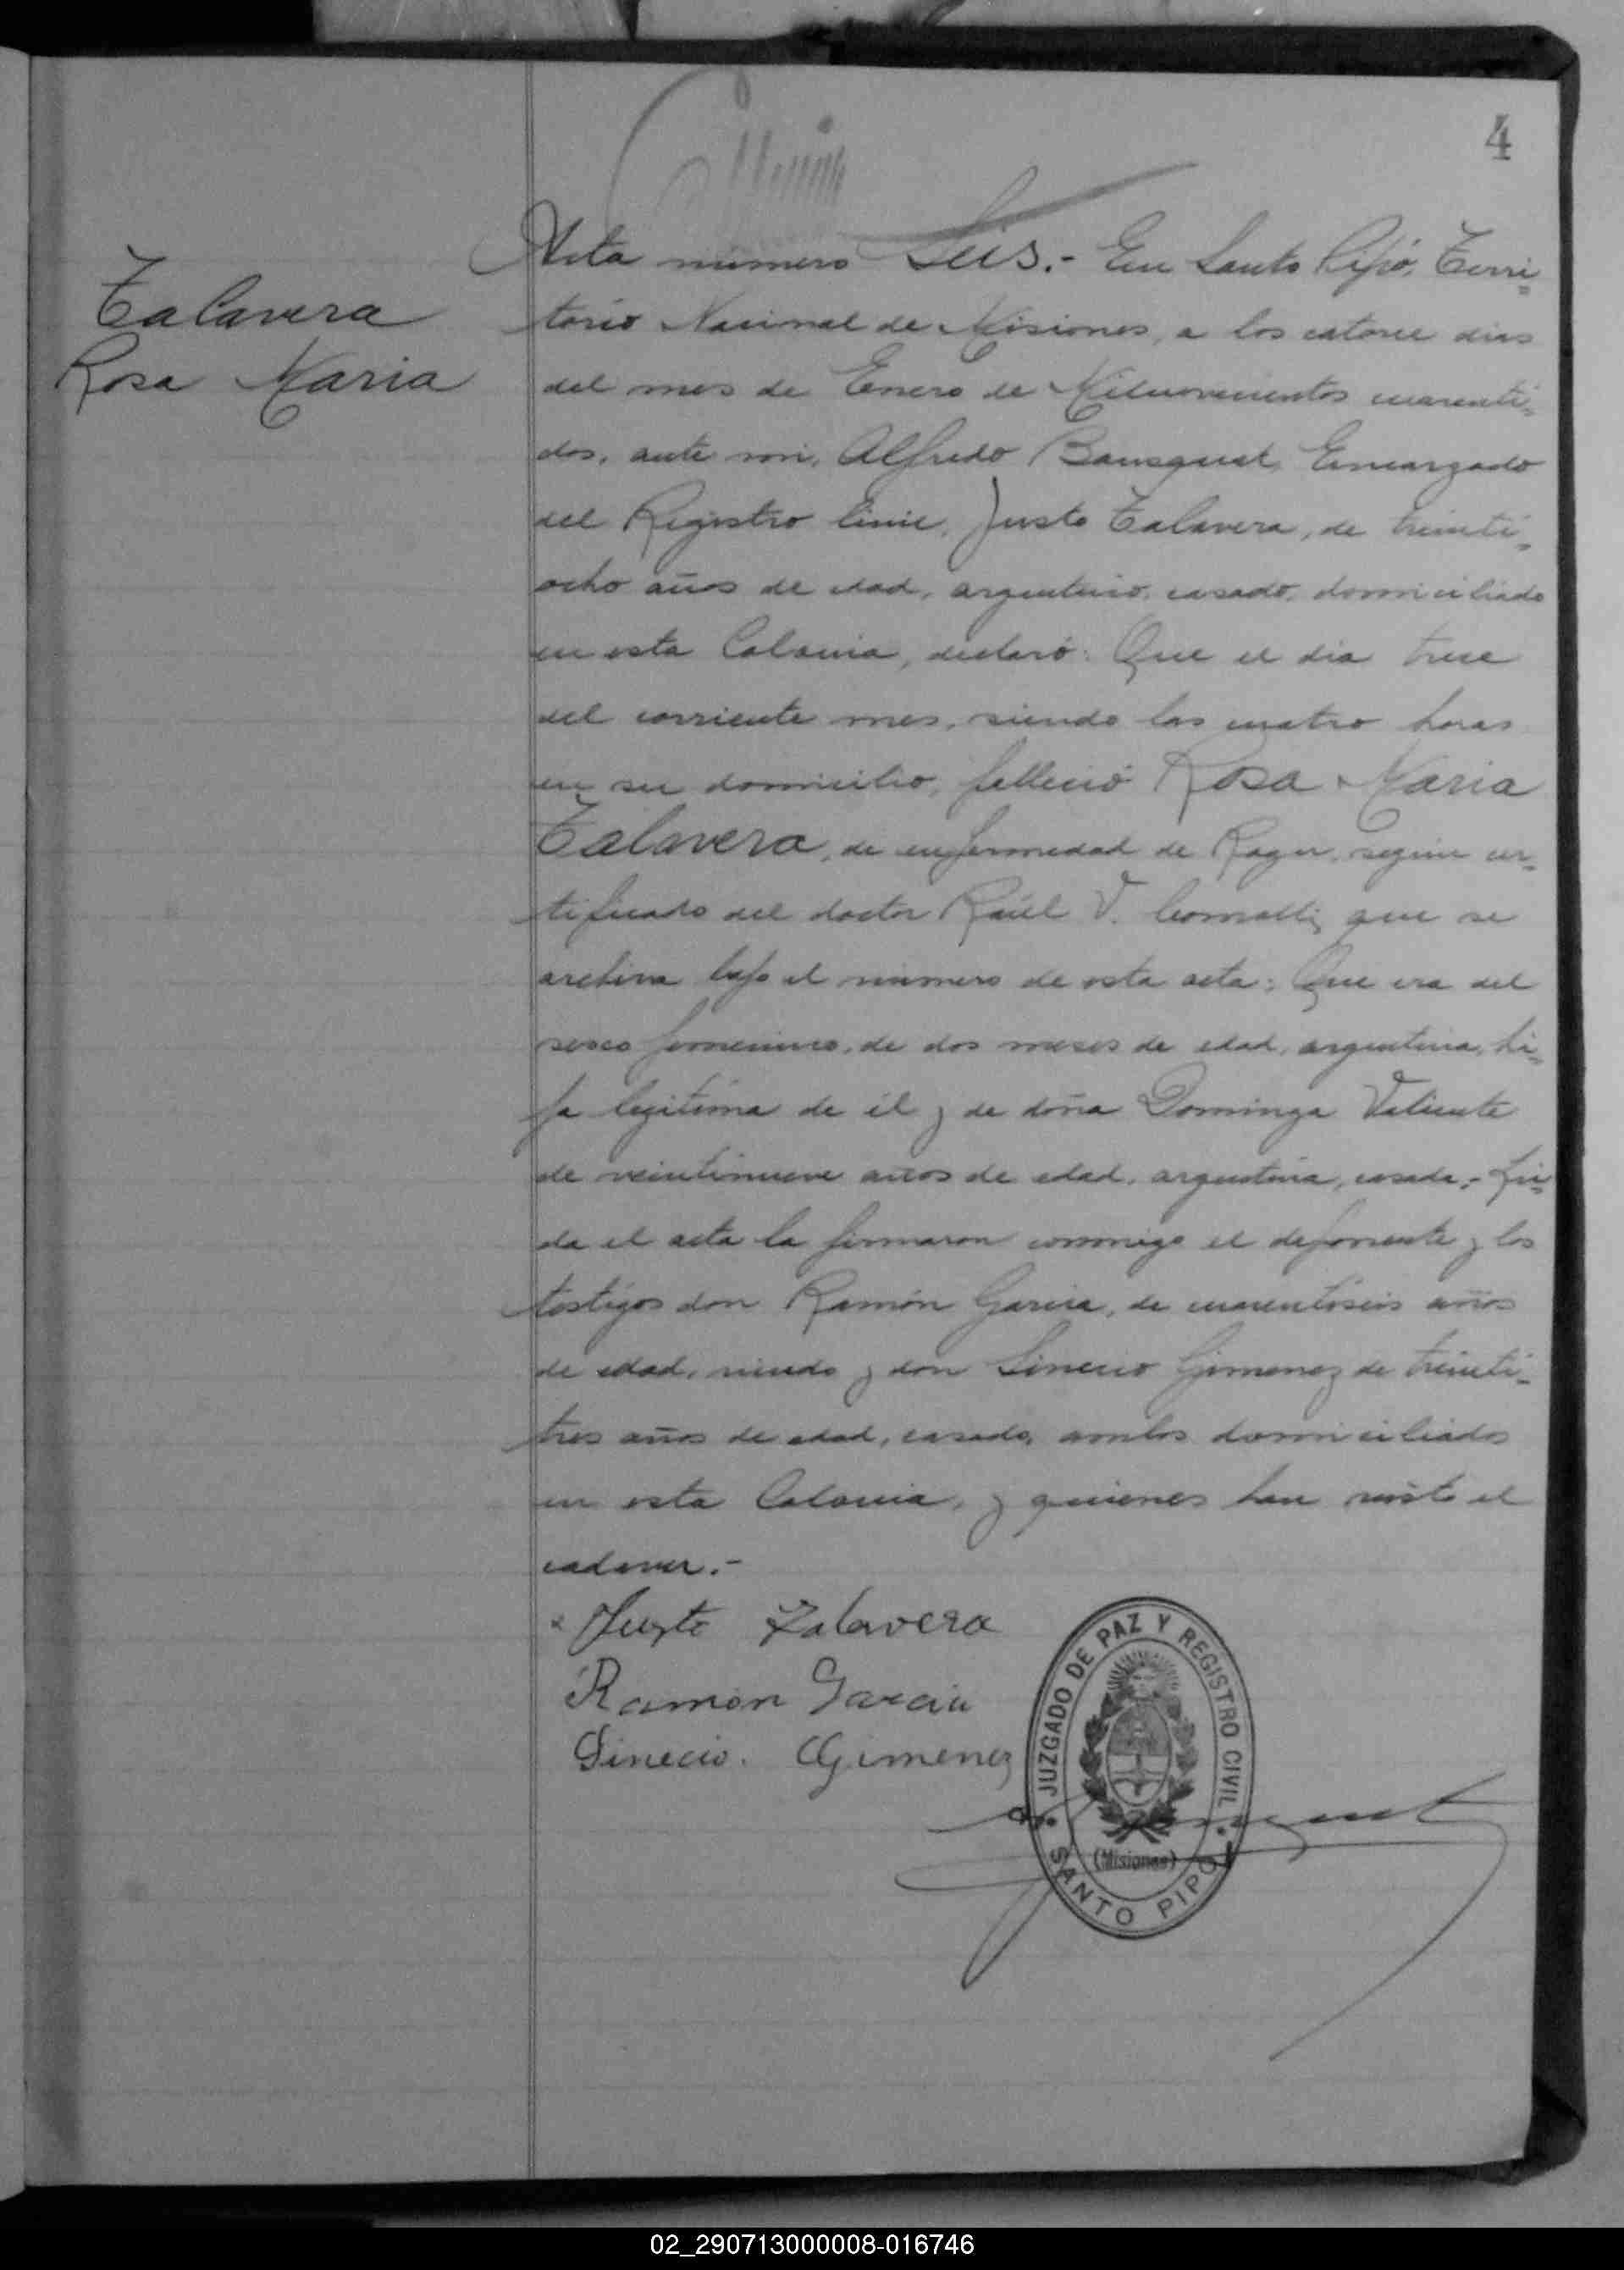 4
Talavera
Rosa Maria
Acta número Seis.- En Santo Pipó, Terri=
torio Nacional de Misiones, a los catorce dias
del mes de Enero de Milnovecientos cuarenti=
dos, ante mi, Alfredo Bousquet, Encargado
del Registro Civil, Justo Talavera, de treinti=
ocho años de edad, argentino, casado, domiciliado
en esta Colonia, declaró: Que el dia trece
del corriente mes, siendo las cuatro horas
en su domicilio, falleció Rosa Maria
Talavera, de enfermedad de Roger, según cer=
tificado del doctor Raúl V. que se
archiva bajo el número de esta acta; Que era del
sexo femenino, de dos meses de edad, argentina, hi=
ja legitima de él y de doña Dominga Valiente
de veintinueve años de edad, argentina, casada.- Lei=
da el acta la firmaron conmigo el deponente y los
testigos don Ramón Garcia, de cuarentiseis años
de edad, viudo y don Sinecio Gimenez de treinti=
tres años de edad, casado, ambos domiciliados
en esta Colonia, y quienes han visto el
cadaver.-
Justo Talavera
Ramón Garcia
Sinecio. Gimenez
JUZGADO DE PAZ Y REGISTRO CIVIL
(Misiones)
SANTO PIPÓ
02_290713000008-016746